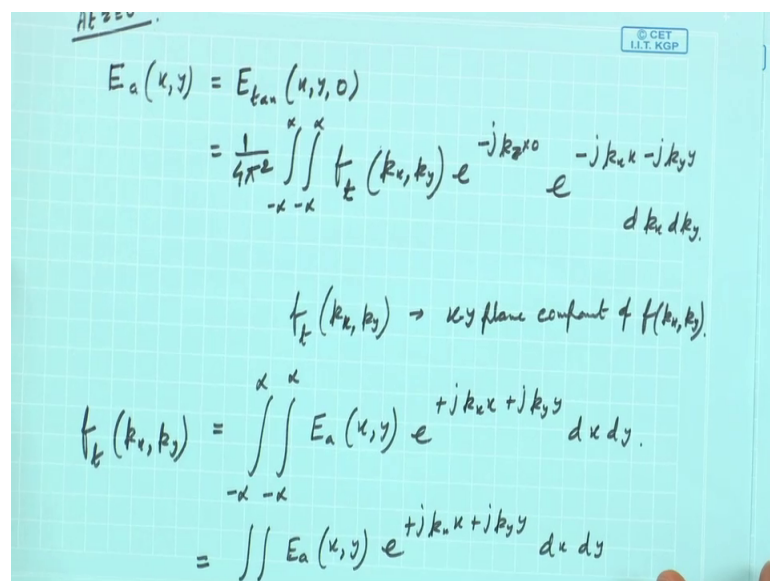 At z=0.
© CET
I.I.T. KGP
Eₐ(x,y) = E_tan(x,y,0)
= 1/4π² ∫∫_{-∝ -∝}^{∝ ∝} f_t(kₓ,k_y) e^{-jk_z×0} e^{-jkₓx-jk_yy}
dkₓ dk_y.
f_t(kₓ,k_y) → x-y plane compont of f(kₓ,k_y).
f_t(kₓ,k_y) = ∫∫_{-∝ -∝}^{∝ ∝} Eₐ(x,y) e^{+jkₓx+jk_yy} dx dy.
= ∫∫ Eₐ(x,y) e^{+jkₓx+jk_yy} dx dy